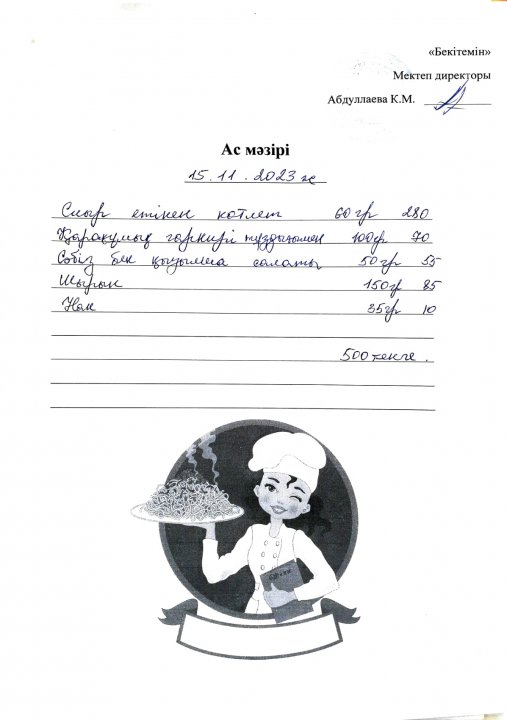 «Бекітемін»
Мектеп директоры
Абдуллаева К.М.
Ас мәзірі
15.11.2023 ж
Сиыр етінен котлет 60гр 280
Қарақұмық гарнирі тұздығымен 100гр 70
Сәбіз бен қызылша салаты 50гр 55
Шырын 150гр 85
Нан 35гр 10
500 тенге.